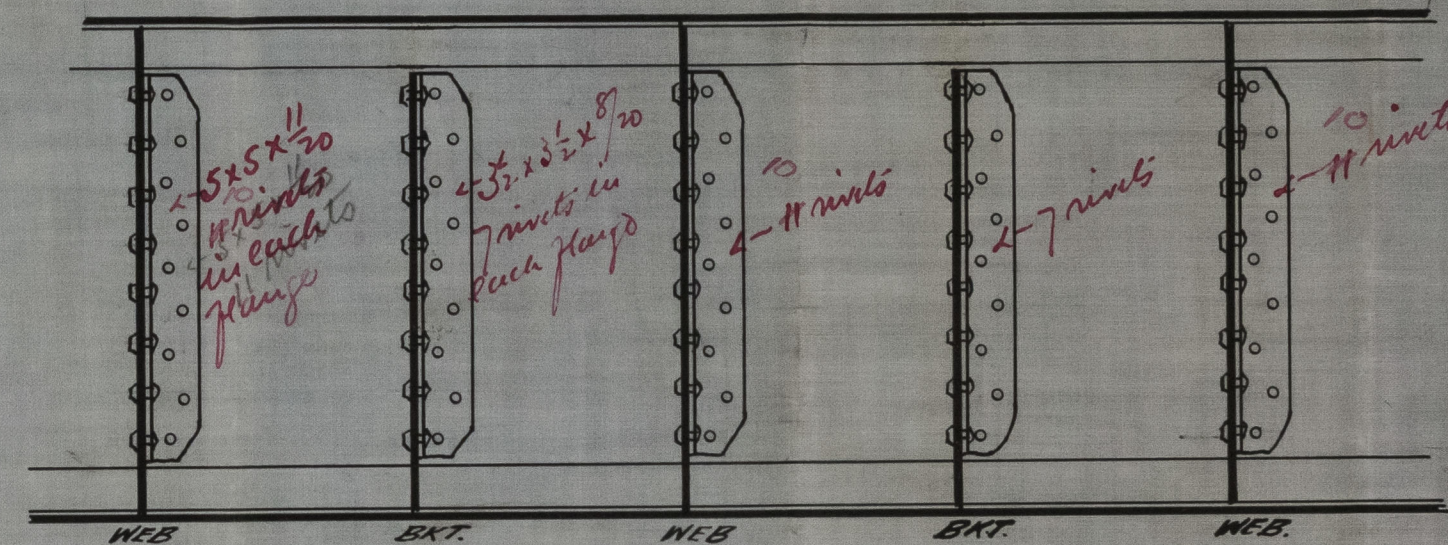 5 x 5 x 11/20
10
11 rivets
in each
flange
3 1/2 x 3 1/2 x 8/20
7 rivets in
each flange
10
11 rivets
7 rivets
10
11 rivets
WEB
BKT.
WEB
BKT.
WEB.